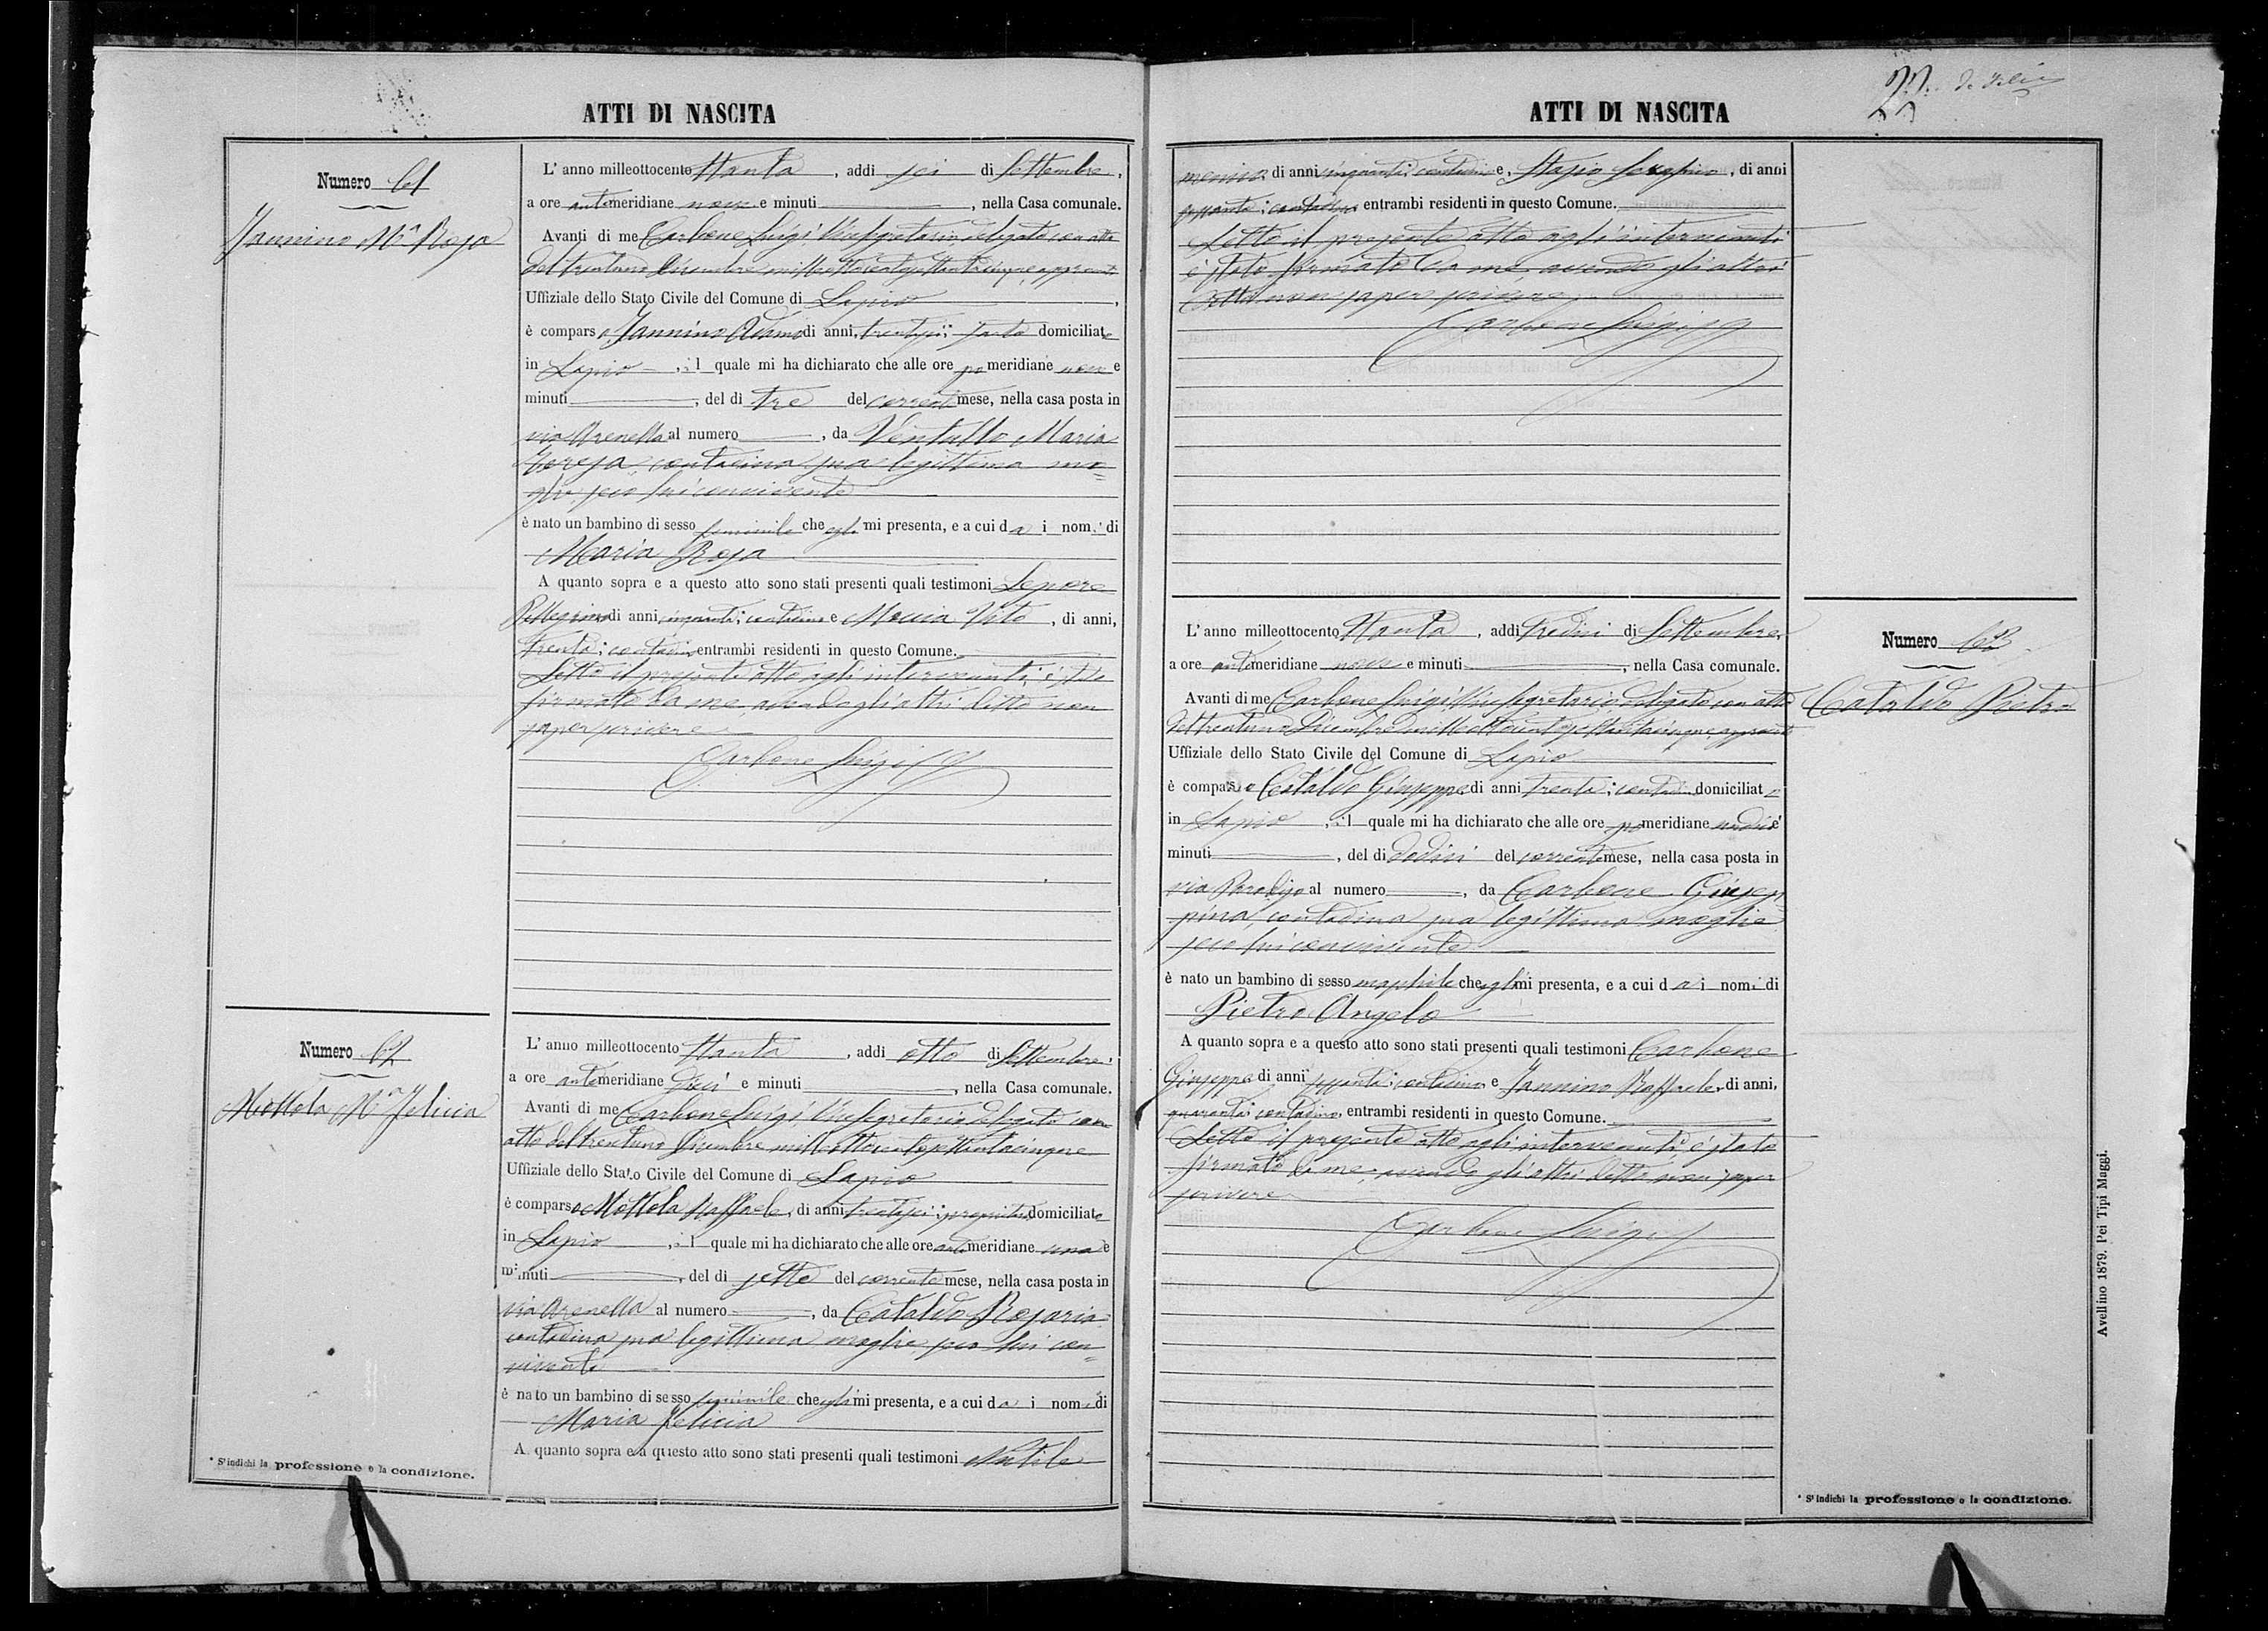 ATTI DI NASCITA
Numero 61
Jannino Mª Rosa
L' anno milleottocento ottanta, addi sei di Settembre,
a ore antimeridiane nove e minuti, nella Casa comunale.
Avanti di me Carbone Luigi Vicesegretario delegato con atto
del trentuno Dicembre milleottocentosettantacinque approvato
Uffiziale dello Stato Civile del Comune di Lapio,
è comparso Jannino Adamo di anni, trentasei; sarto domiciliato
in Lapio, il quale mi ha dichiarato che alle ore pomeridiane nove e
minuti, del di tre del corrente mese, nella casa posta in
via Arenella al numero, da Ventullo Maria
Teresa contadina sua legittima mo=
glie, seco lui convivente
è nato un bambino di sesso feminile che egli mi presenta, e a cui da i nomi di
Maria Rosa
A quanto sopra e a questo atto sono stati presenti quali testimoni Lepore
Pellegrino di anni, cinquanta; contadino e Moccia Vito, di anni,
trenta; contadino entrambi residenti in questo Comune.
Letto il presente atto agli intervenuti, è stato
firmato da me, avendo gli altri detto non
saper scrivere
Carbone Luigi
Numero 62
Mottola Mª Felicia
L' anno milleottocento ottanta, addi otto di Settembre,
a ore antimeridiane dieci e minuti, nella Casa comunale.
Avanti di me Carbone Luigi Vicesegretario delegato con
atto del trentuno Dicembre milleottocentosettantacinque
Uffiziale dello Stato Civile del Comune di Lapio
è comparso Mottola Raffaele, di anni trentasei; proprietario domiciliato
in Lapio, il quale mi ha dichiarato che alle ore antimeridiane una e
minuti, del di sette del corrente mese, nella casa posta in
via Arenella al numero, da Cataldo Rosaria
contadina sua legittima moglie, seco lui con=
vivente
è nato un bambino di sesso feminile che egli mi presenta, e a cui da i nomi di
Maria Felicia
A quanto sopra e a questo atto sono stati presenti quali testimoni Nutile
* S'indichi la professione o la condizione.
ATTI DI NASCITA
22
di anni cinquanta; contadino e, Stasio Serafino, di anni
sessanta; contadino entrambi residenti in questo Comune.
Letto il presente atto agli intervenuti
è stato firmato da me, avendo gli altri
detto non sapere scrivere
Carbone Luigi
Numero 63
Cataldo Pietro
L' anno milleottocento ottanta, addi tredici di Settembre,
a ore antimeridiane nove e minuti, nella Casa comunale.
Avanti di me Carbone Luigi Vicesegretario delegato con atto
del trentuno Dicembre milleottocentosettantacinque approvato
Uffiziale dello Stato Civile del Comune di Lapio
è comparso Cataldo Giuseppe di anni trenta; contadino domiciliato
in Lapio, il quale mi ha dichiarato che alle ore pomeridiane undici e
minuti, del di dodici del corrente mese, nella casa posta in
via Paradiso al numero, da Carbone Giusep
pina, contadina sua legittima moglie
seco lui convivente
è nato un bambino di sesso maschile che egli mi presenta, e a cui da i nomi di
Pietro Angelo
A quanto sopra e a questo atto sono stati presenti quali testimoni Carbone
Giuseppe di anni sessanta; contadino e Jannino Raffaele, di anni,
quaranta; contadino, entrambi residenti in questo Comune.
Letto il presente atto agli intervenuti, è stato
firmato da me, avendo gli altri detto non saper
scrivere
Carbone Luigi
* S'indichi la professione o la condizione.
Avellino 1879. Pei Tipi Maggi.